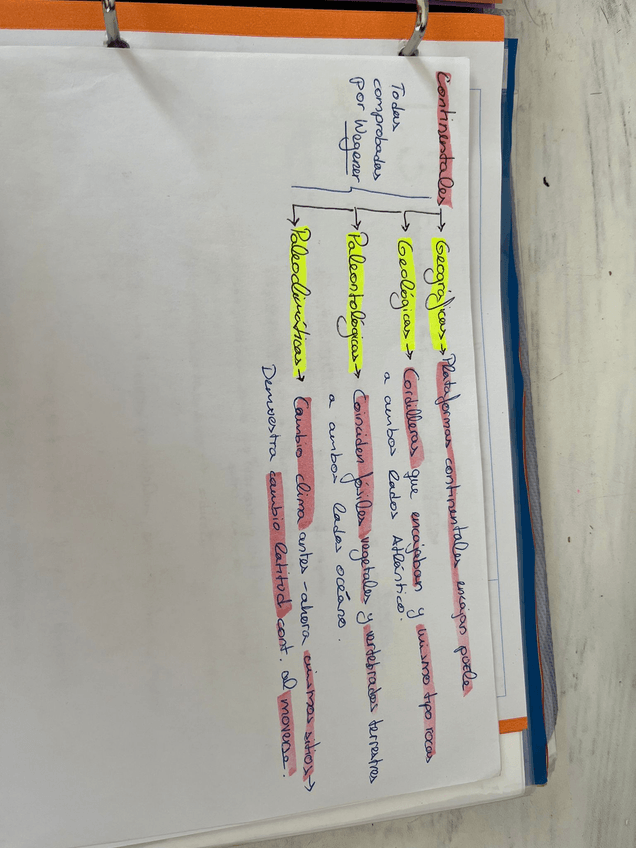 Continentales → Geográficas → Plataformas continentales encajan puzle
→ Geológicas → Cordilleras que encajaban y mismo tipo rocas
a ambos lados Atlántico.
→ Paleontológicas → Coinciden fósiles vegetales y vertebrados terrestres
a ambos lados océano.
→ Paleoclimáticas → Cambio clima antes - ahora mismos sitios →
Demuestra cambio latitud cont. al moverse.
Todas
comprobadas
por Wegener